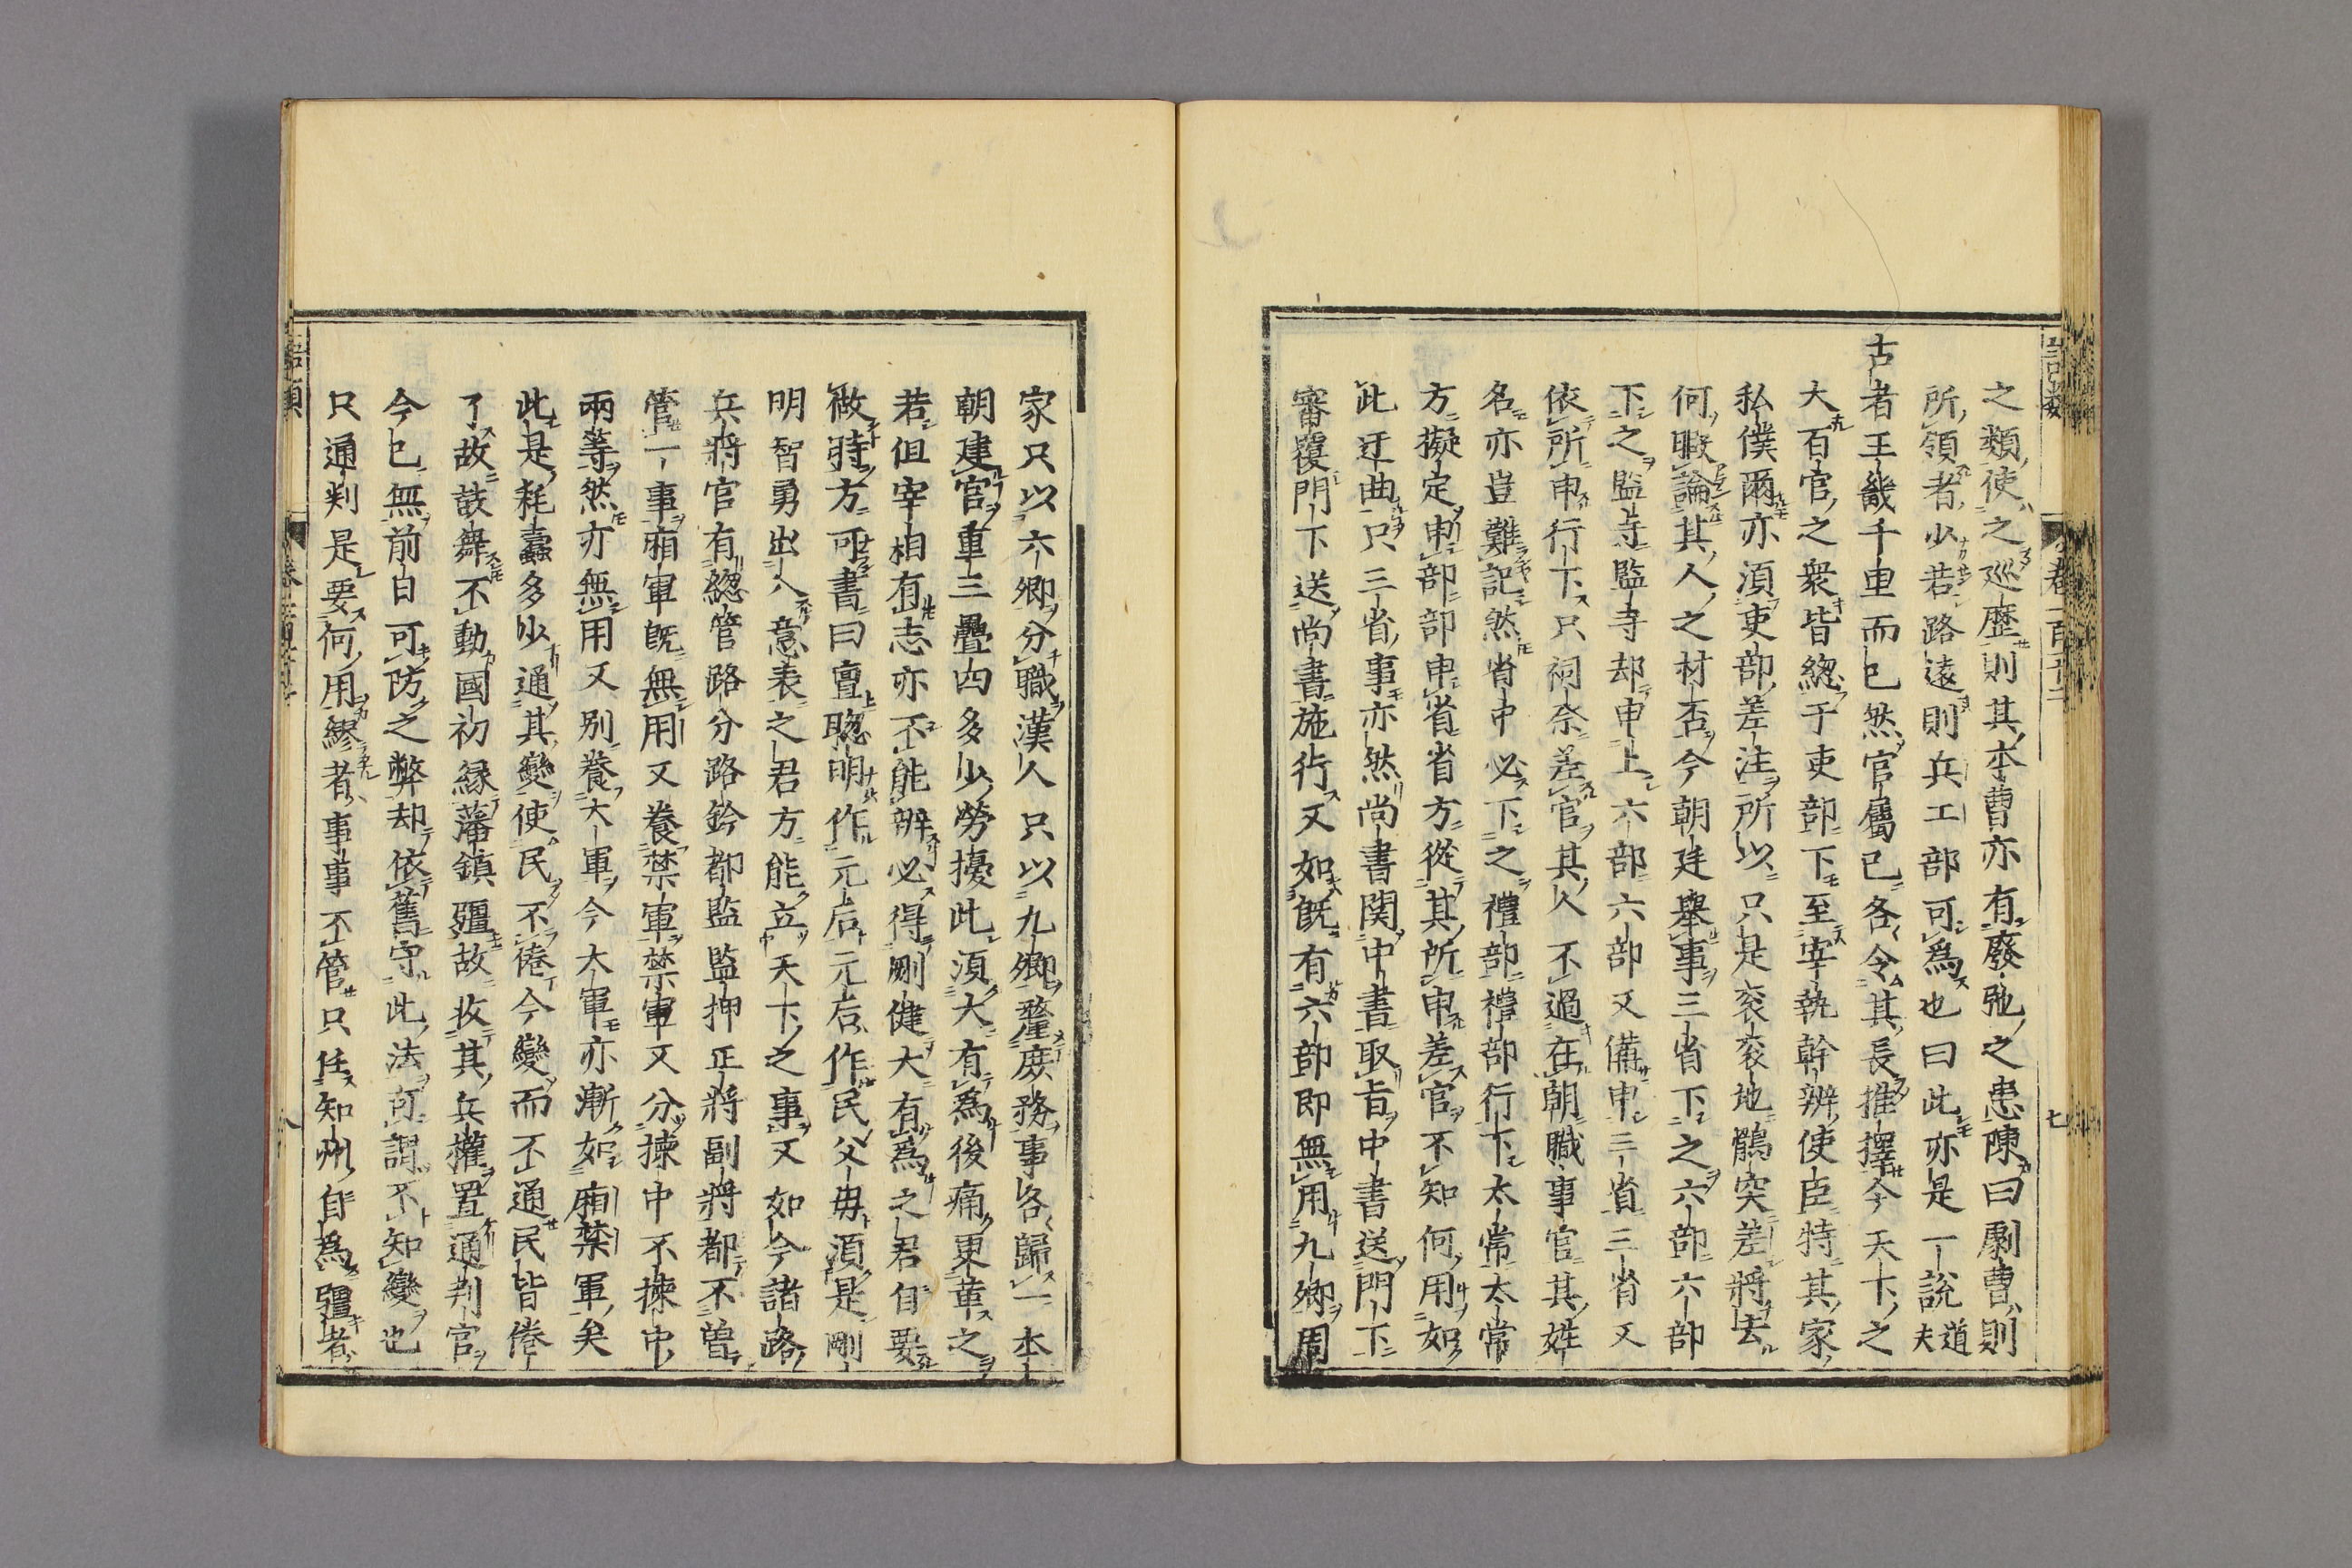 之類使之巡歷則其本曹亦有廢弛之患陳曰劇曹則
所領者少若路遠則兵工部可爲也曰此亦是一說道夫
古者王畿千里而已然官屬已各令其長推擇今天下之
大百官之衆皆總于吏部下至宰執幹辨使臣特其家
私僕爾亦須吏部差注所以只是衮衮地鶻突差將去
何暇論其人之材否今朝廷舉事三省下之六部六部
下之監寺監寺却申上六部六部又備申三省三省又
依所申行下只祠祭差官其人不過在朝職事官其姓
名亦豈難記然省中必下之禮部禮部行下太常太常
方擬定申部部申省省方從其所申差官不知何用如
此迂曲只三省事亦然尚書關中書取旨中書送門下
審覆門下送尚書施行又如既有六部即無用九卿周
家只以六卿分職漢人只以九卿釐庶務事各歸一本
朝建官重三疊四多少勞擾此須大有爲後痛更革之
若但宰相有志亦不能辨必得剛健大有爲之君自要
做時方可書曰亶聰明作元后元后作民父母須是剛
明智勇出人意表之君方能立天下之事又如今諸路
兵將官有總管路分路鈐都監監押正將副將都不曽
管一事廂軍既無用又養禁軍禁軍又分揀中不揀中
兩等然亦無用又別養大軍今大軍亦漸如廂禁軍矣
此是耗蠹多少通其變使民不倦今變而不通民皆倦
了故鼓舞不動國初縁藩鎮彊故收其兵權置通判官
今已無前日可防之弊却依舊守此法可謂不知變也
只通判是要何用繆者事事不管只任知州自爲彊者
語類
卷一百十二
七
語類
卷一百十二
八